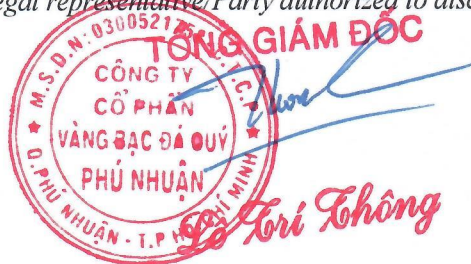 egal representative/Party authorized to disc
TỔNG GIÁM ĐỐC
M.S.D.N: 0300521
C.T.C.P
CÔNG TY
CỔ PHẦN
VÀNG BẠC ĐÁ QUÝ
PHÚ NHUẬN
Q.PHÚ NHUẬN - T.P HỒ CHÍ MINH
Lê Trí Thông